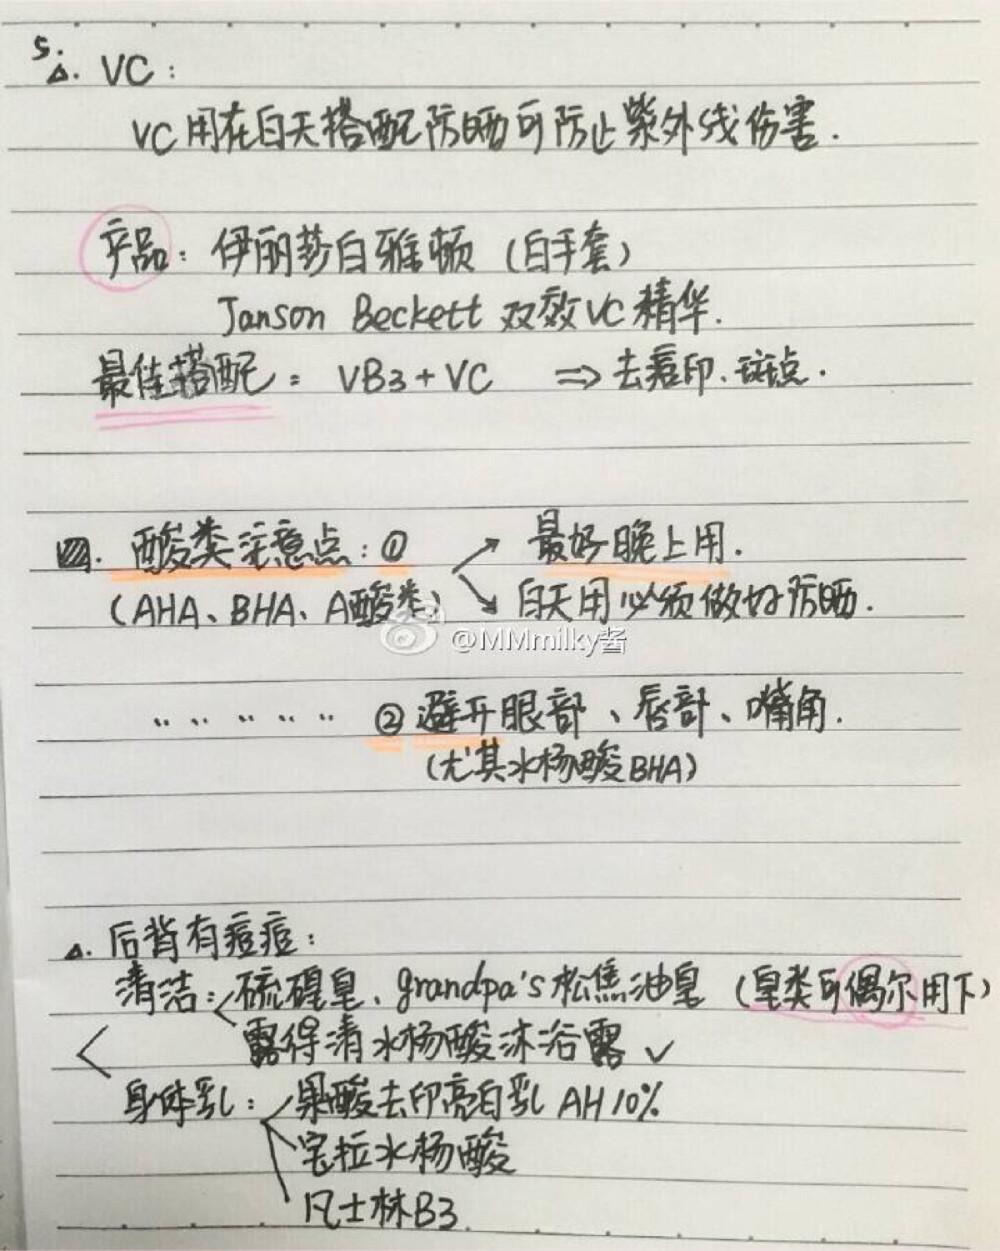 5.
△. VC:
VC用在白天搭配防晒可防止紫外线伤害.
产品: 伊丽莎白雅顿 (白手套)
Janson Beckett 双效VC精华.
最佳搭配: VB3+VC ⇒ 去痘印、斑点.
四. 酸类注意点: ① 最好晚上用.
(AHA、BHA、A酸类) 白天用必须做好防晒.
@MMmilky酱
〃 〃 〃 〃 〃 ② 避开眼部、唇部、嘴角.
(尤其水杨酸BHA)
△. 后背有痘痘:
清洁: 硫磺皂、grandpa's松焦油皂 (皂类可偶尔用下)
露得清水杨酸沐浴露 ✓
身体乳: 果酸去印亮白乳 AH10%
宝拉水杨酸
凡士林B3.